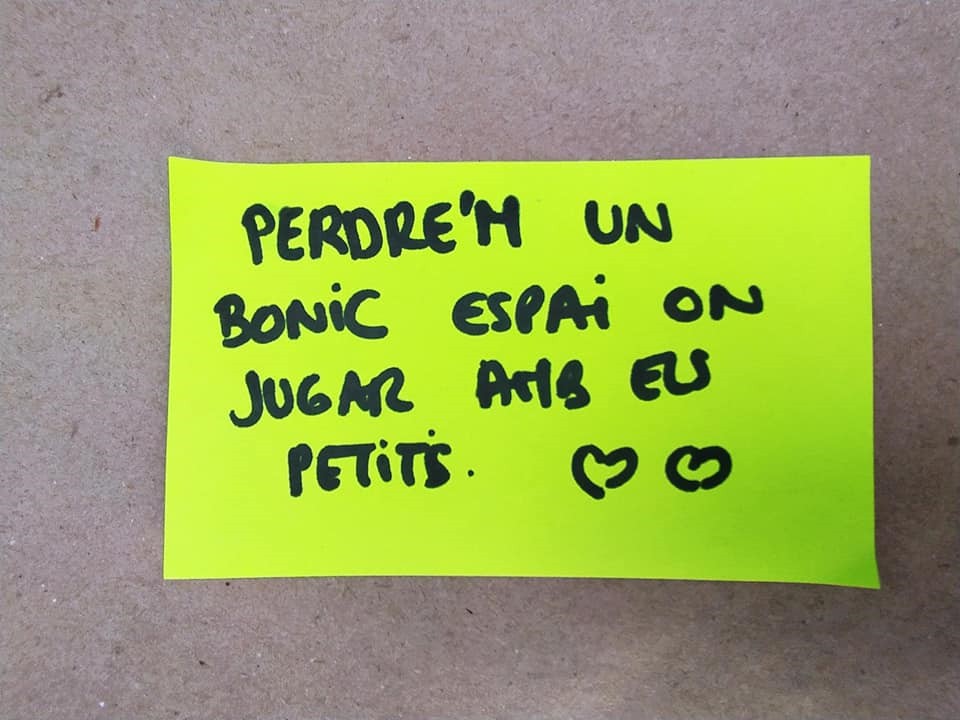 PERDRE'M UN
BONIC ESPAI ON
JUGAR AMB ELS
PETITS.